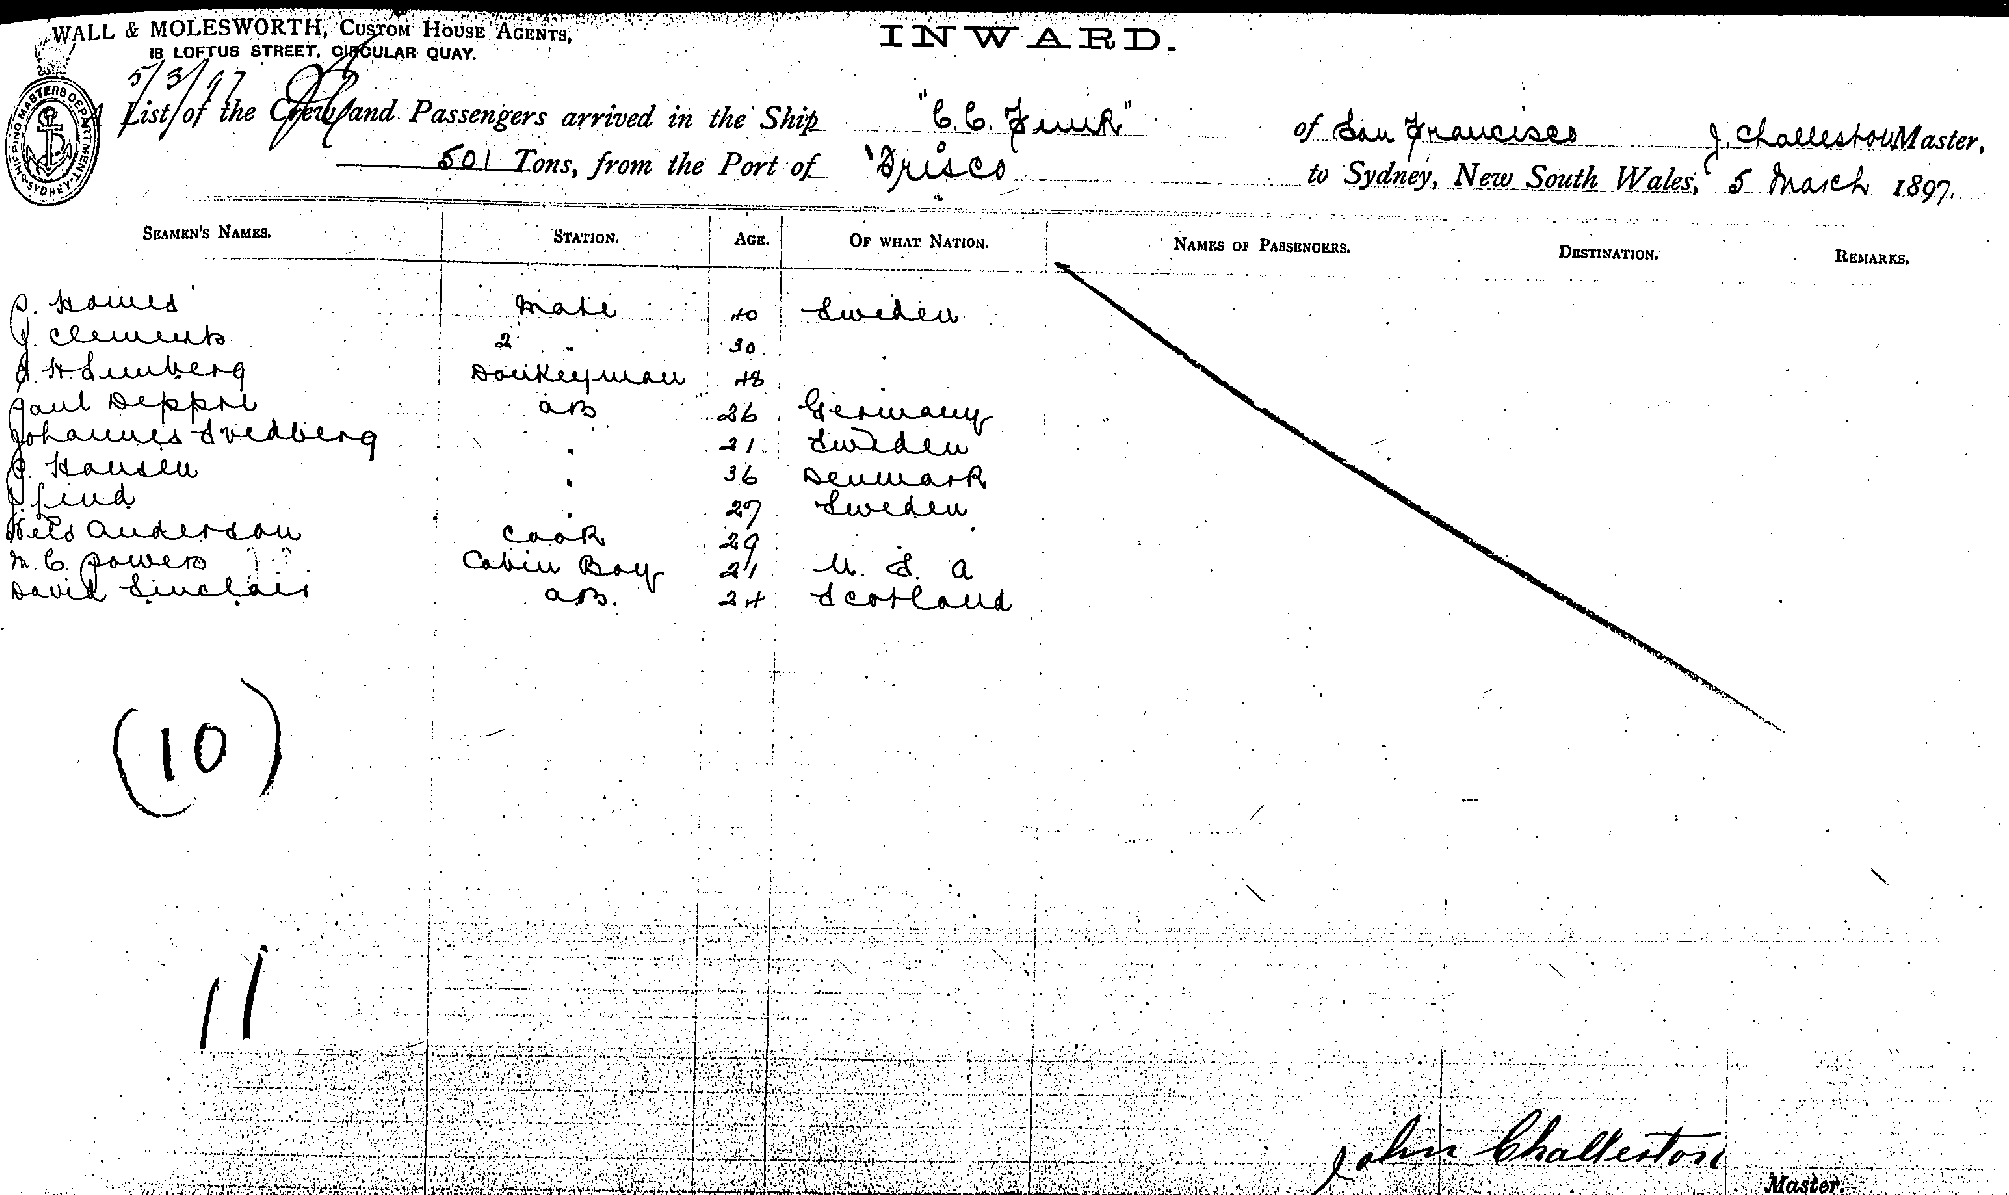 WALL & MOLESWORTH, CUSTOM HOUSE AGENTS,
18 LOFTUS STREET, CIRCULAR QUAY.
INWARD.
5/3/97
SHIPPING MASTERS DEPARTMENT SYDNEY
List of the Crew and Passengers arrived in the Ship "C.C. Funk" of San Francisco J. Challeston Master,
501 Tons, from the Port of 'Frisco to Sydney, New South Wales, 5 March 1897.
SEAMEN'S NAMES. STATION. AGE. OF WHAT NATION. NAMES OF PASSENGERS. DESTINATION. REMARKS.
Mate 40 Sweden
J. Clements 2 " 30
Donkeyman 48
Paul Deppre AB 26 Germany
Johannes Svedberg " 21 Sweden
P. Hansen " 36 Denmark
J. Lind " 27 Sweden
Nels Anderson Cook 29
M. C. Powers Cabin Boy 21 U. S. A
David Sinclair AB. 24 Scotland
(10)
11
John Challeston
Master.